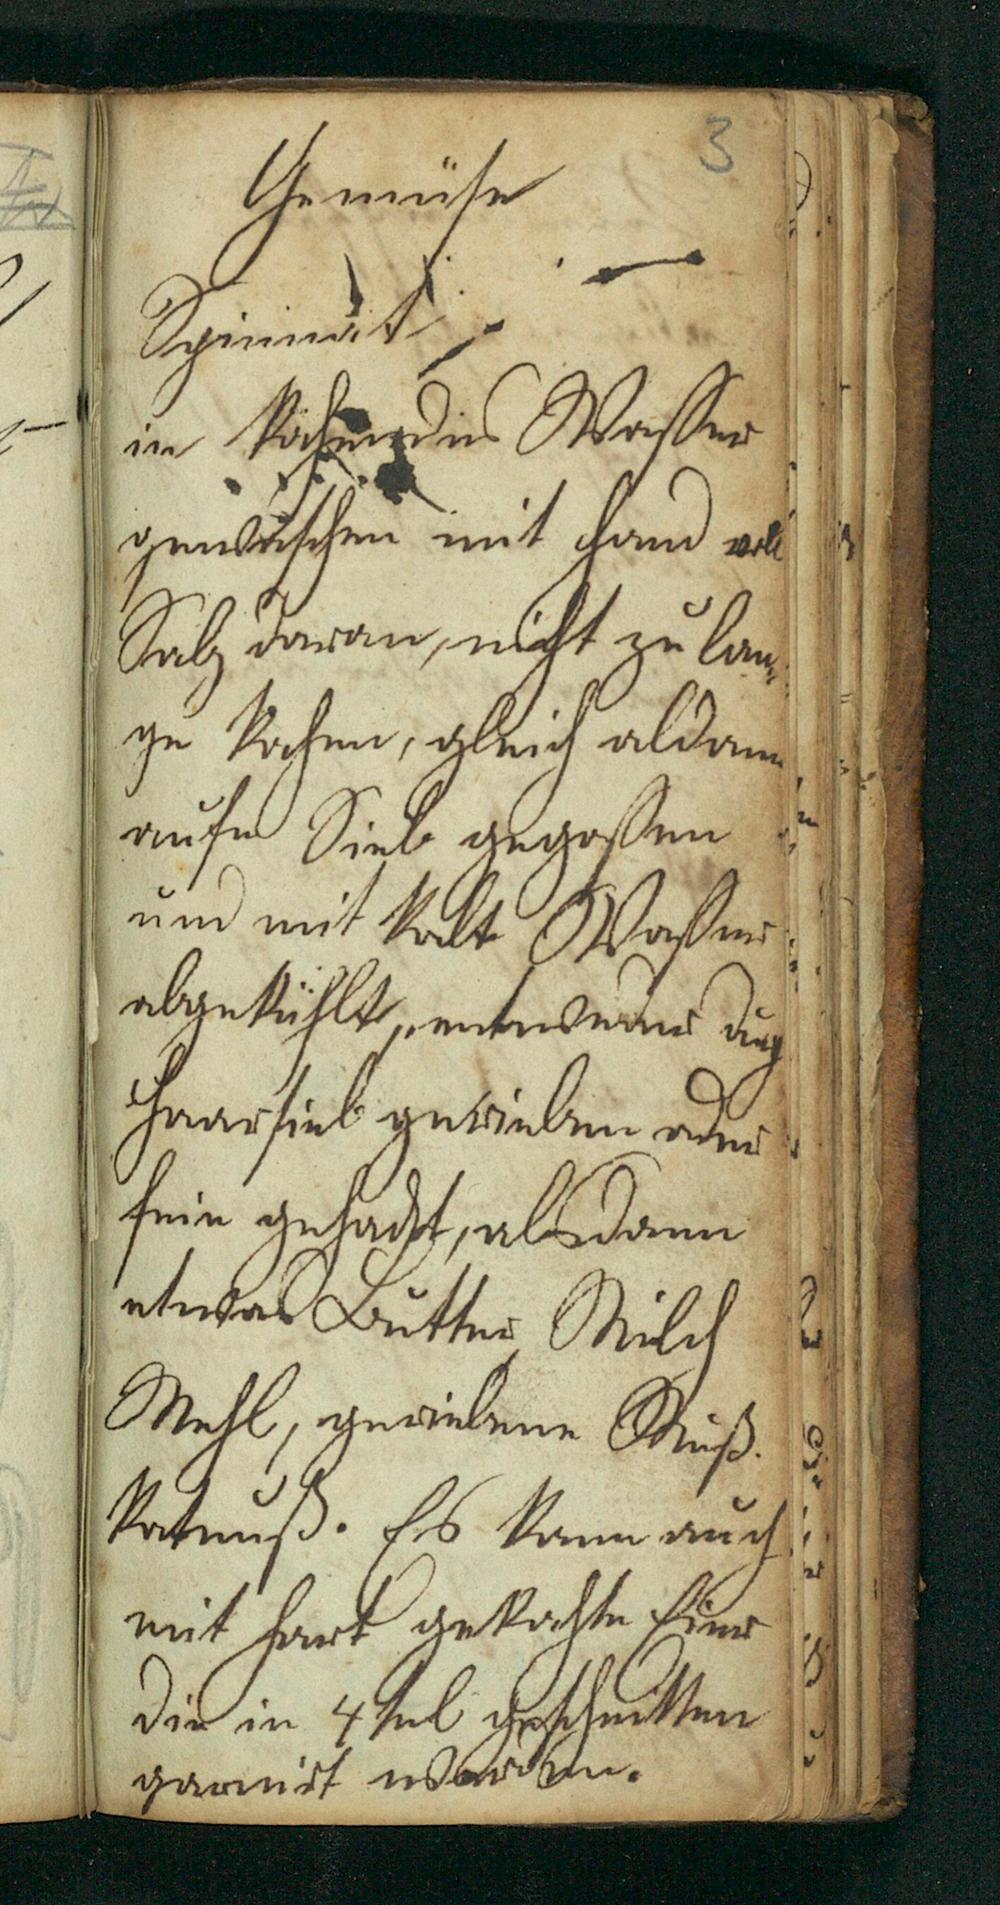 3
Gemüse
Spinnat
in kochendes Wasser
gewaschen mit Hand voll
Salz daran, nicht zu lan
ge kochen, gleich aldann
aufn Sieb gegossen
und mit kalt Wasser
abgekühlt, entweder durch
Haarsieb gerieben oder
fein gehackt, alsdann
etwas Butter, Milch
Mehl, geriebene Muß.
katnuß. Es kann auch
mit hart gekochte Eier
die in 4tel geschnitten
garnirt werden.